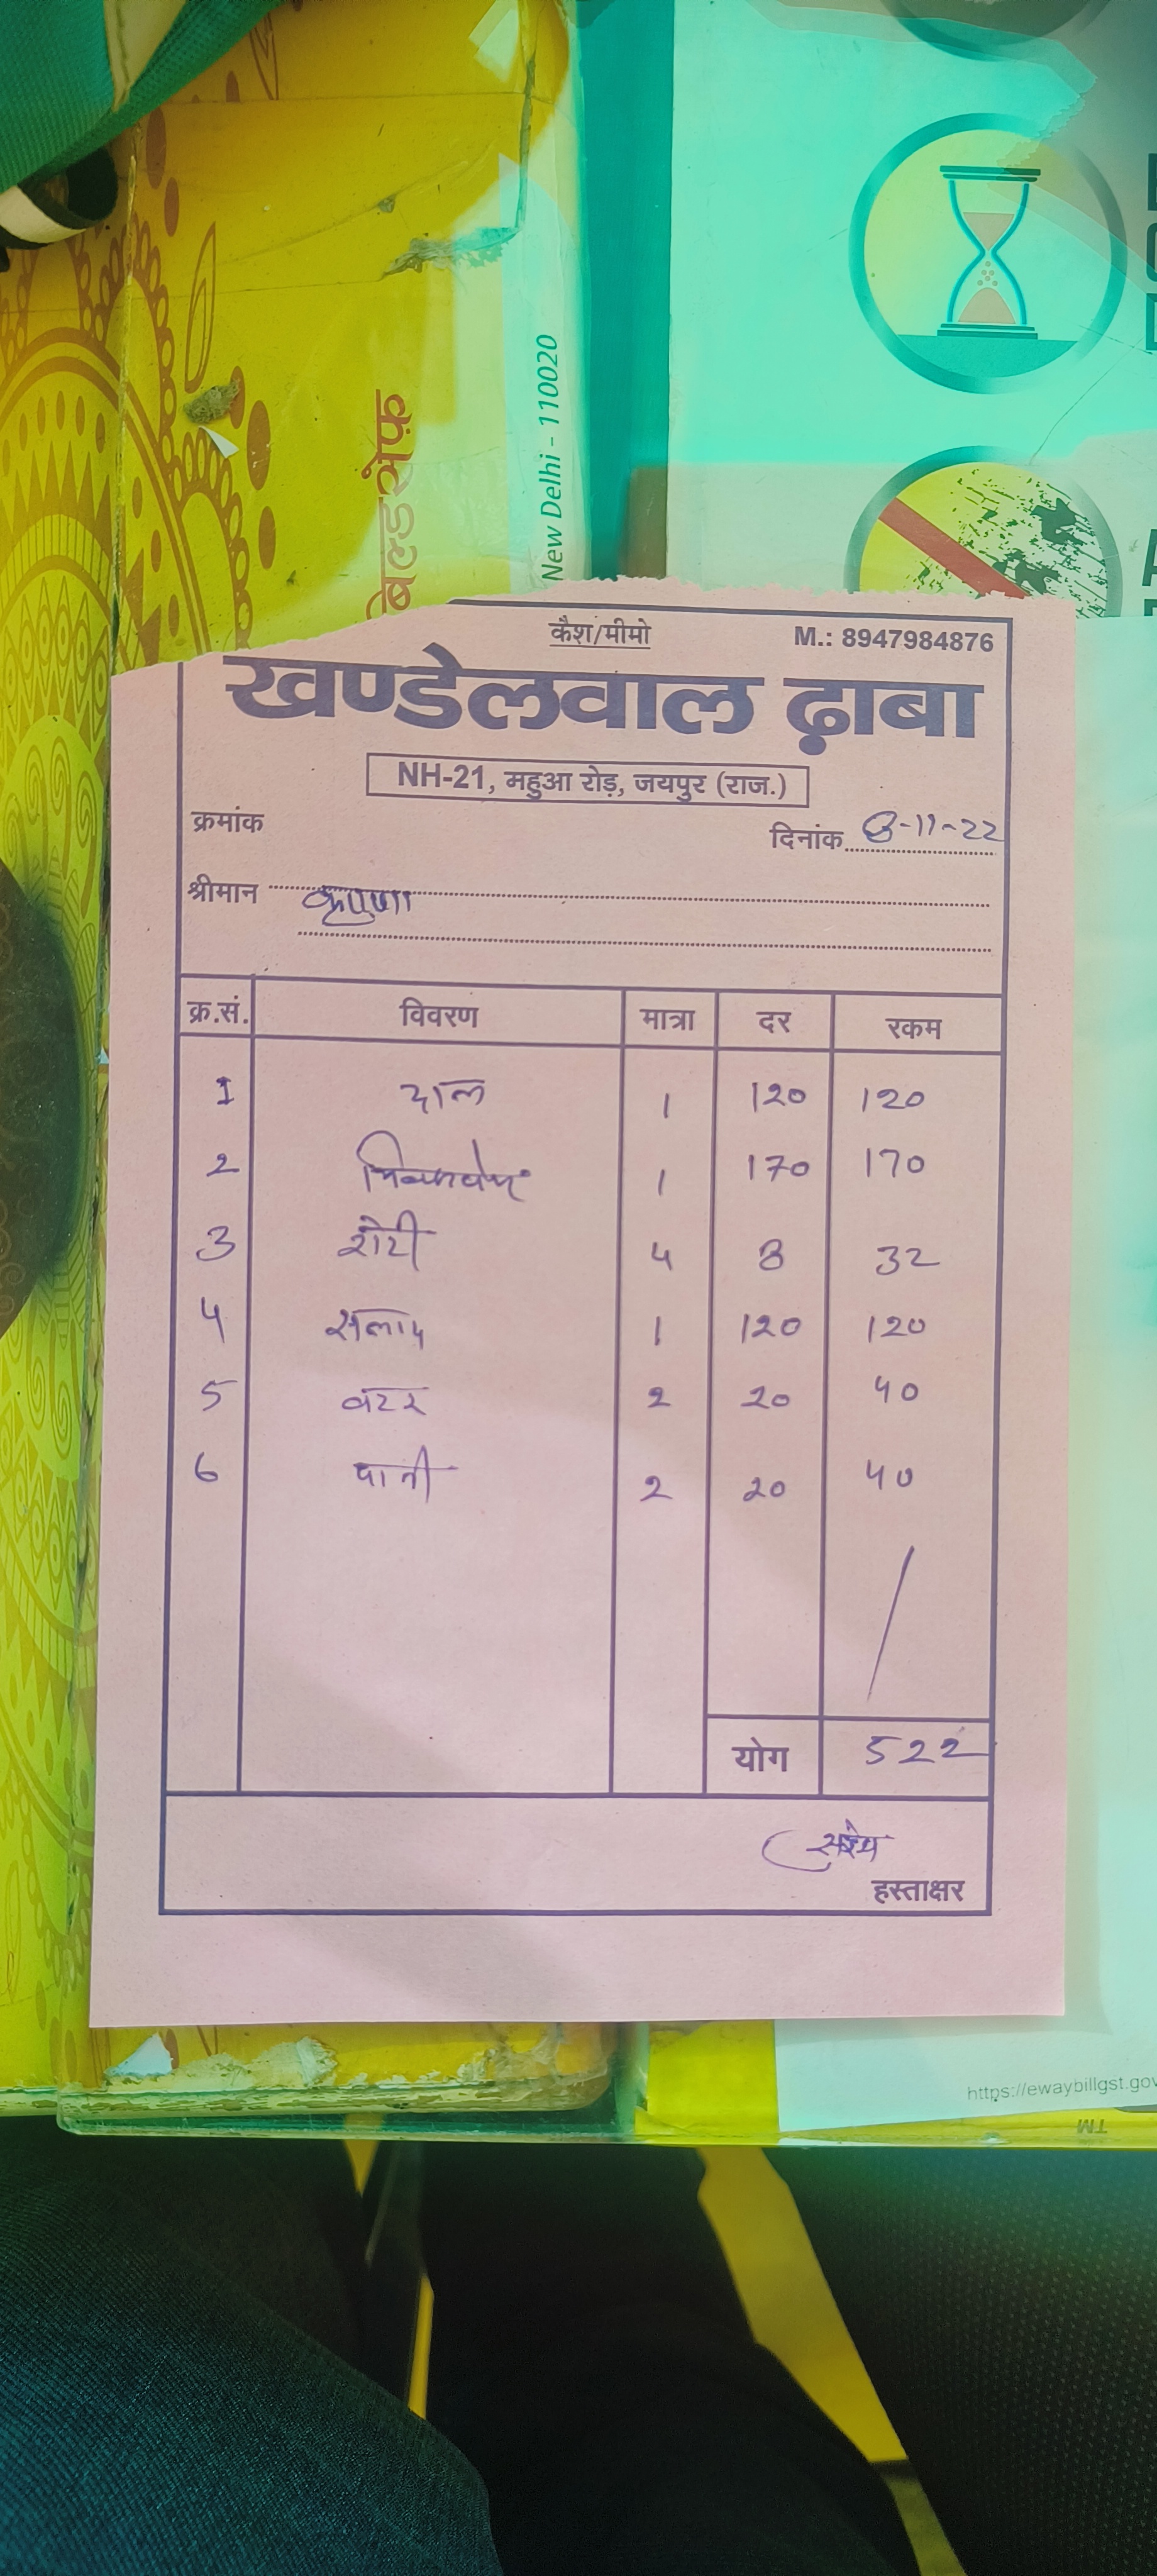 बिल्डसेफ़
New Delhi - 110020
कैश/मीमो M.: 8947984876
खण्डेलवाल ढ़ाबा
NH-21, महुआ रोड़, जयपुर (राज.)
क्रमांक
दिनांक 8-11-22
श्रीमान कृष्णा
क्र.सं. विवरण मात्रा दर रकम
1 दाल 1 120 120
2 1 170 170
3 रोटी 4 8 32
4 सलाद 1 120 120
5 बटर 2 20 40
6 पानी 2 20 40
योग 522
हस्ताक्षर
https://ewaybillgst.gov
TM